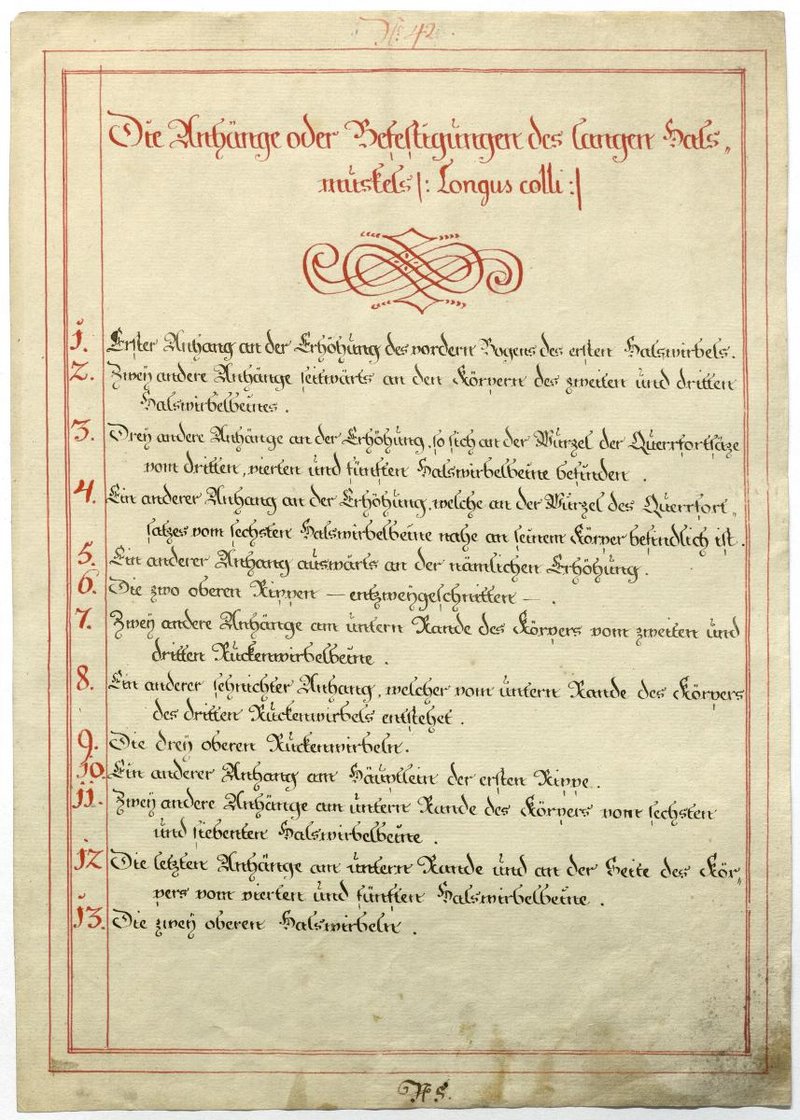 N: 42.
Die Anhänge oder Befestigungen des langen Hals„
muskels |: Longus colli :|
1. Erster Anhang an der Erhöhung des vordern Bogens des ersten Halswirbels.
2. Zwey andere Anhänge seitwärts an den Körpern des zweiten und dritten
Halswirbelbeines.
3. Drey andere Anhänge an der Erhöhung, so sich an der Wurzel der Querrfortsäze
vom dritten, vierten und fünften Halswirbelbeine befinden.
4. Ein anderer Anhang an der Erhöhung, welche an der Wurzel des Querrfort„
satzes vom sechsten Halswirbelbeine nahe an seinem Körper befindlich ist.
5. Ein anderer Anhang auswärts an der nämlichen Erhöhung.
6. Die zwo oberen Rippen — entzweygeschnitten —.
7. Zwey andere Anhänge am untern Rande des Körpers vom zweiten und
dritten Ruckenwirbelbeine.
8. Ein anderer sehnichter Anhang, welcher vom untern Rande des Körpers
des dritten Ruckenwirbels entstehet.
9. Die drey oberen Ruckenwirbeln.
10. Ein anderer Anhang am Häuptlein der ersten Rippe.
11. Zwey andere Anhänge am untern Rande des Körpers vom sechsten
und siebenten Halswirbelbeine.
12 Die letzten Anhänge am untern Rande und an der Seite des Kör„
pers vom vierten und fünften Halswirbelbeine.
13. Die zwey oberen Halswirbeln.
N: 5.